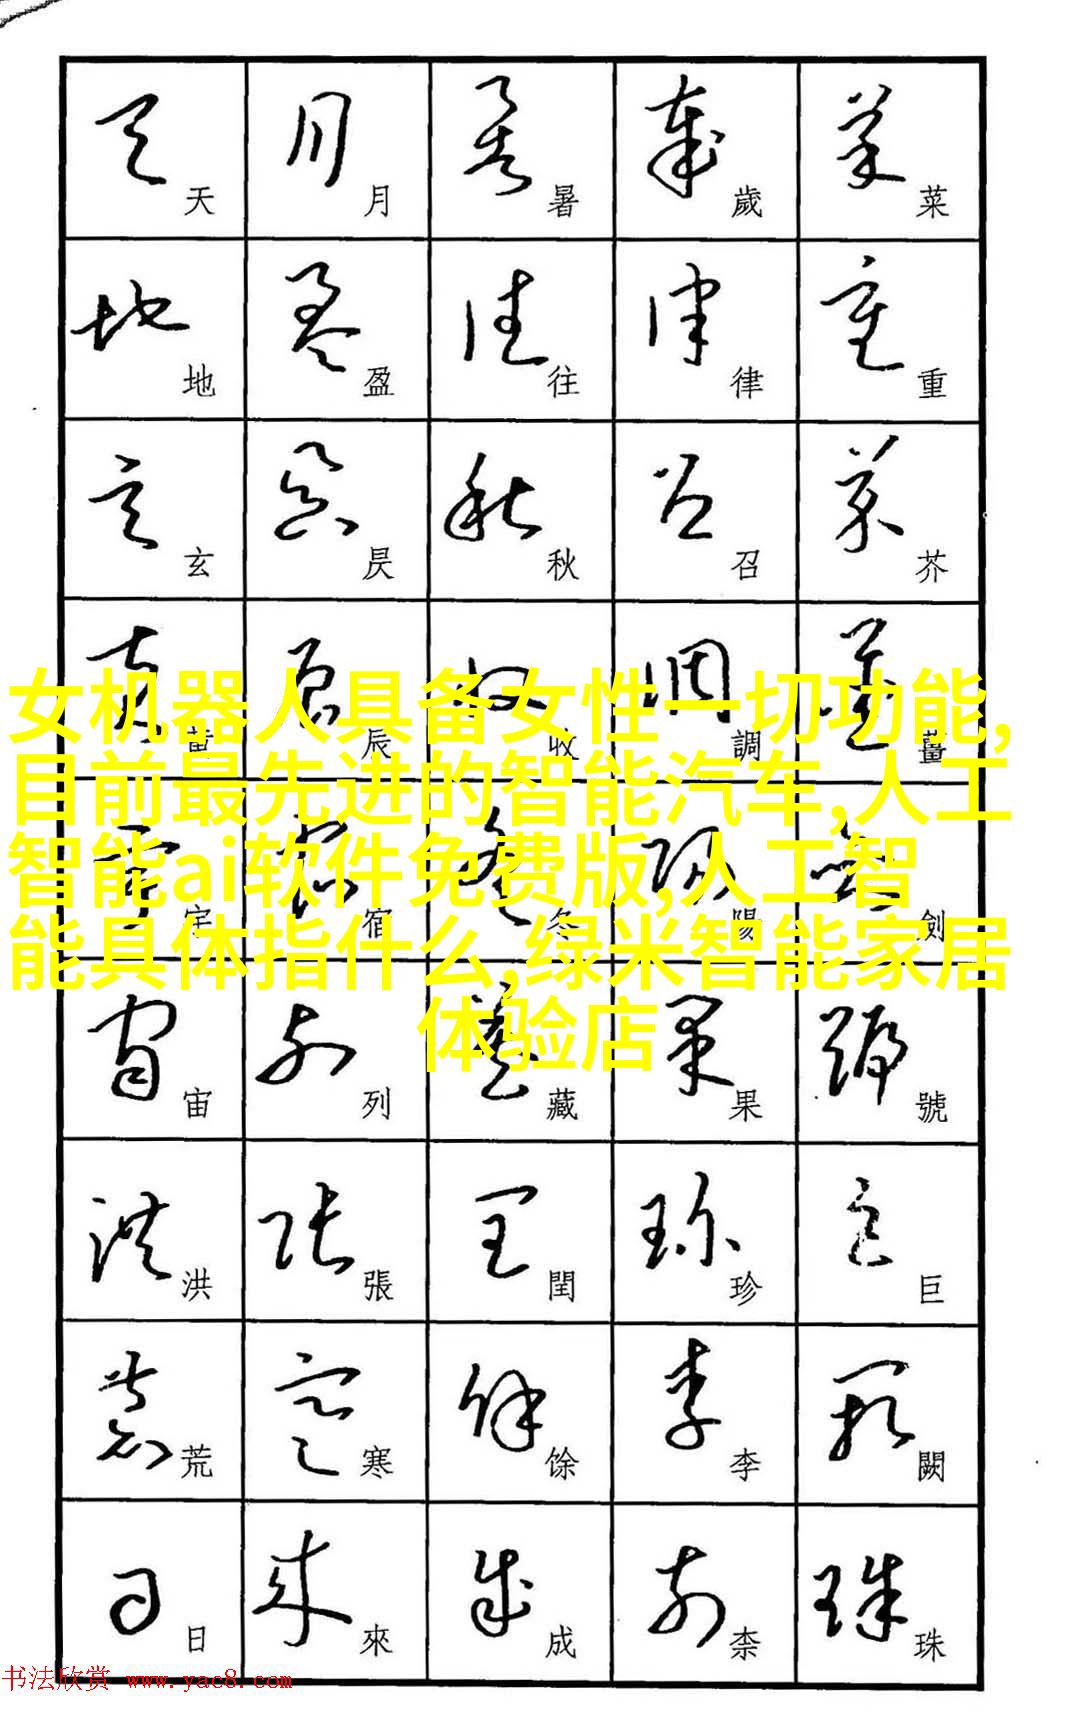 天 月 暑 歲 菜
地 盈 往 律 重
玄 昃 秋 召 芥
黄 辰 收 調 薑
女机器人具备女性一切功能,
目前最先进的智能汽车,人工
智能ai软件免费版,人工智
能具体指什么,绿米智能家居
体验店
宇 宿 冬 陽 劍
宙 列 藏 果 號
洪 張 閏 珍 巨
荒 寒 馀 李 闕
日 來 成 柰 珠
书法欣赏 www.yac8.com